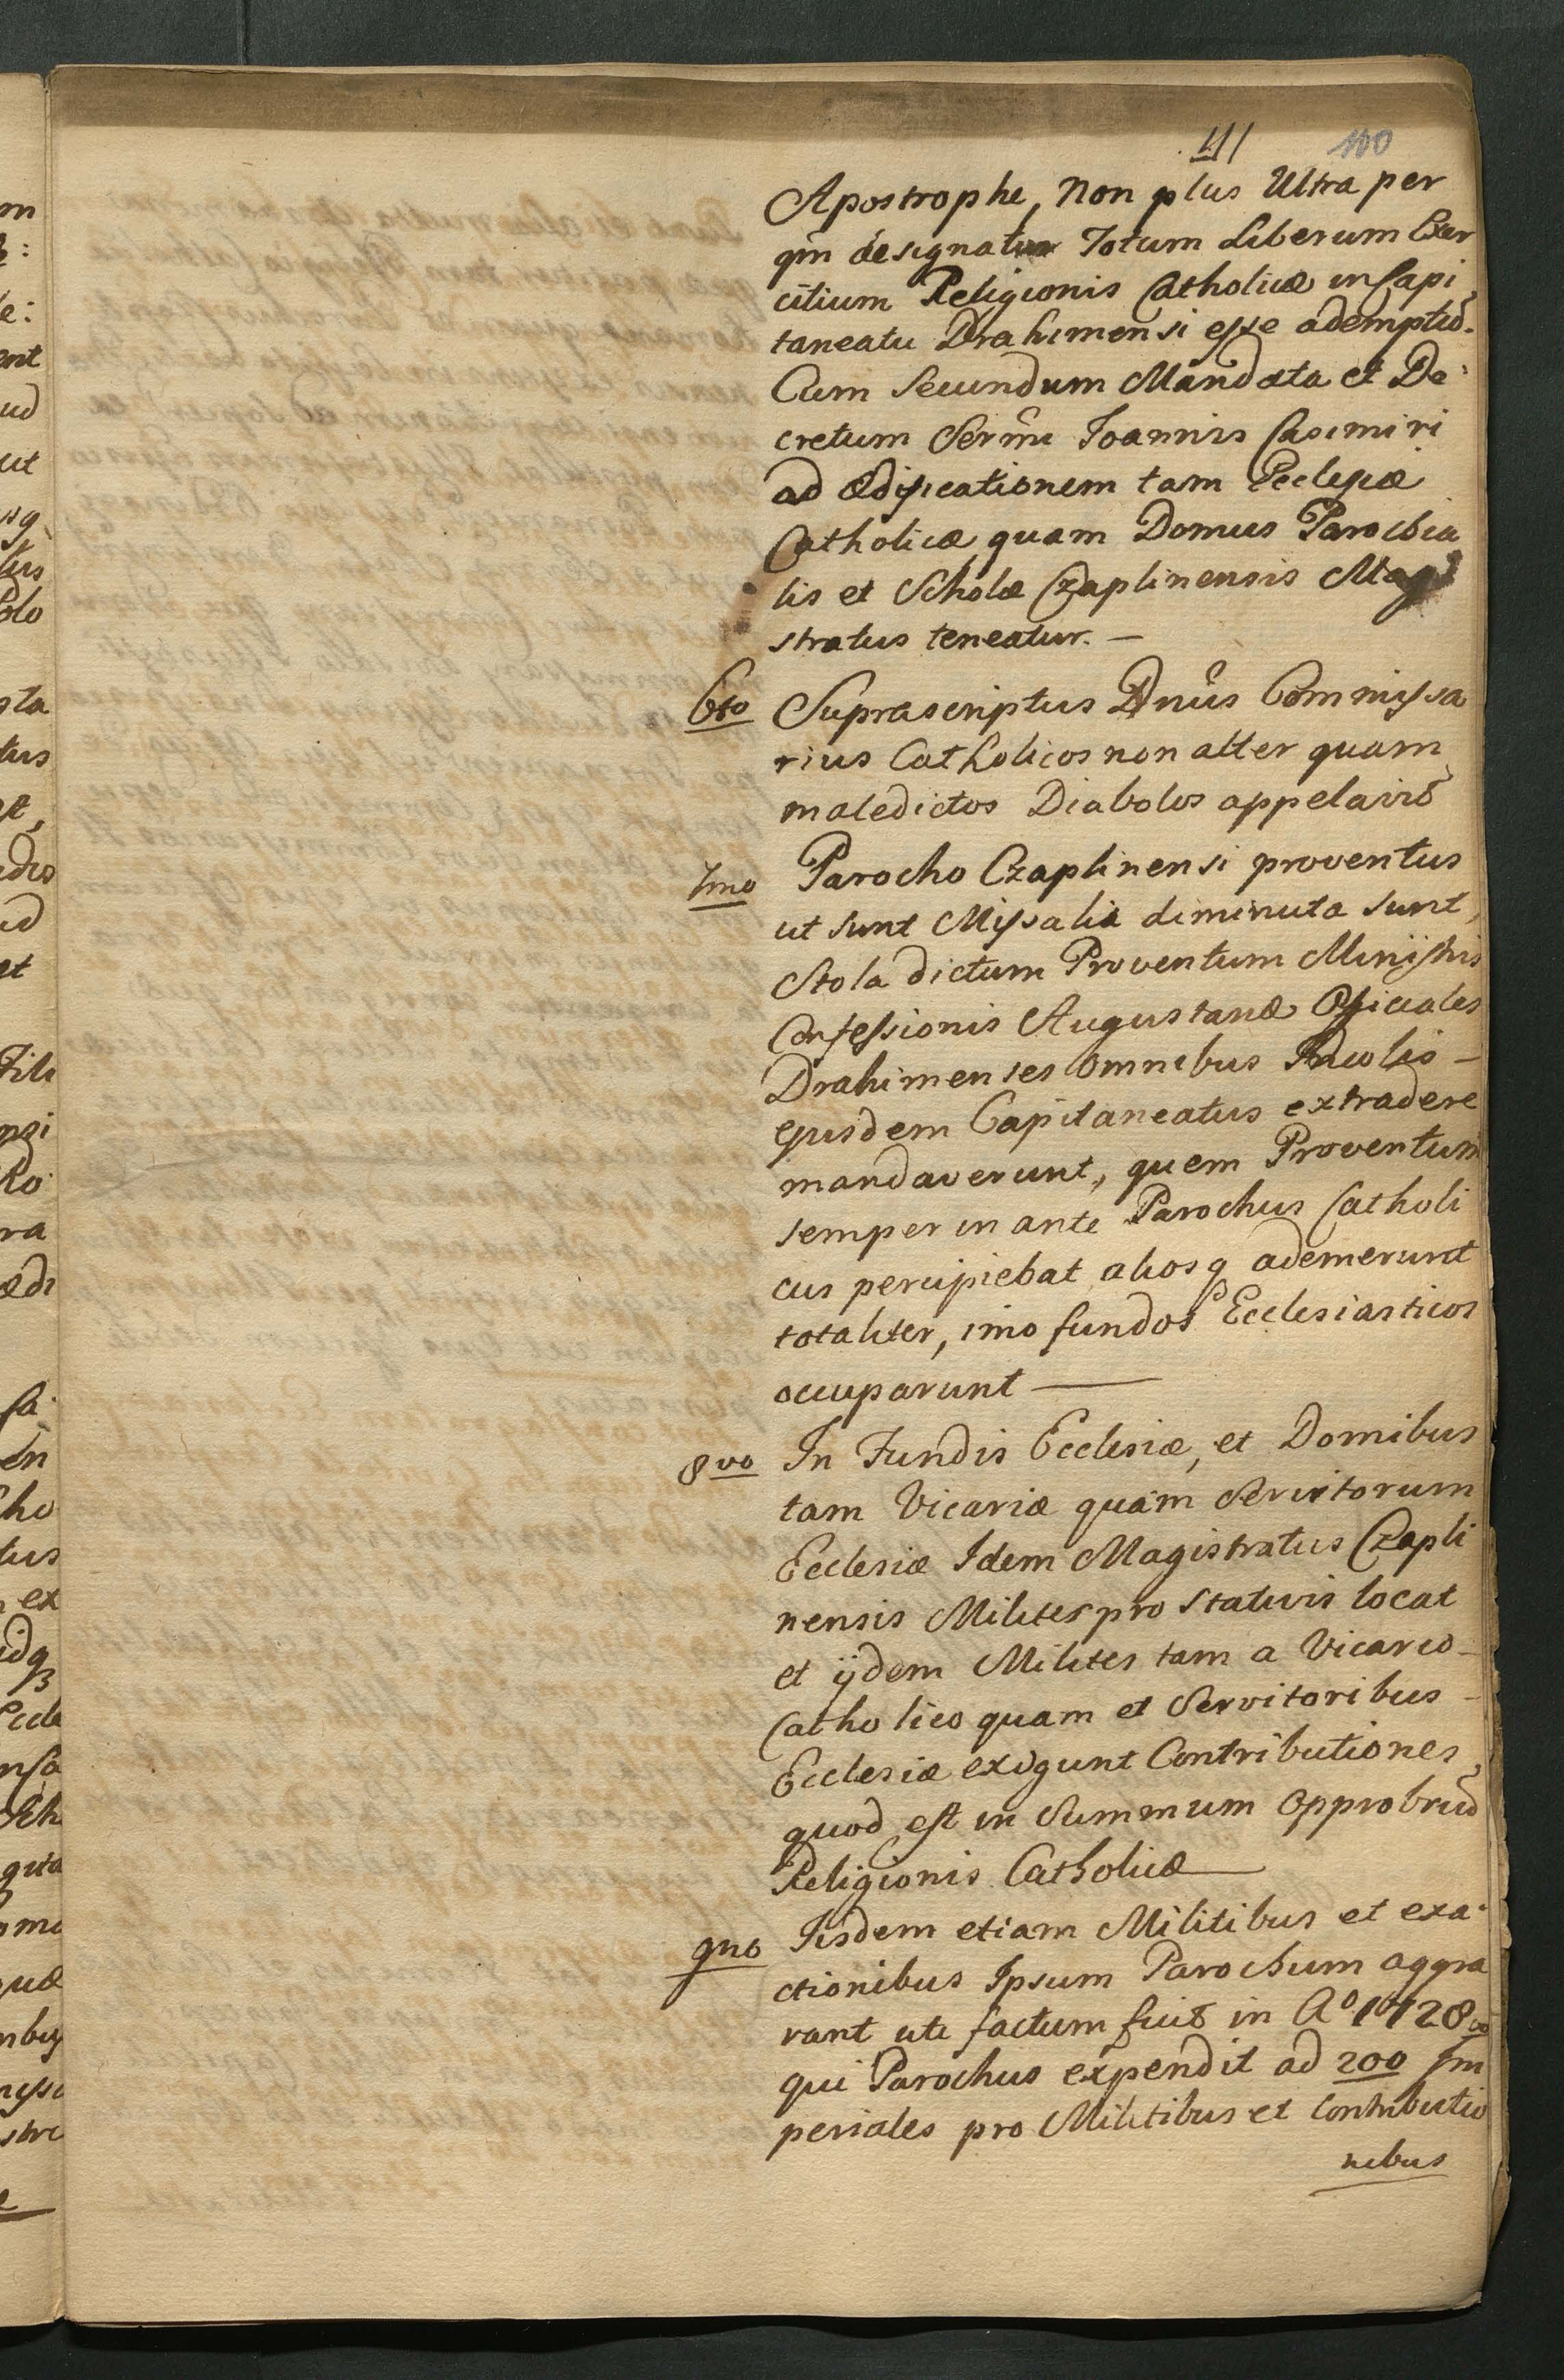 111 100
Apostrophe, Non plus Ultra per
qm̄ designatur Totum Liberum Exer
citium Religionis Catholicæ in Capi
taneatu Drahimensi esse ademptū.
Cum Secundum Mandata et De:
cretum Serm̄i Joannis Casimiri
ad Ædificationem tam Ecclesiæ
Catholicæ quam Domus Parochia
lis et Scholæ Czaplinensis Magi
stratus teneatur. —
6to Suprascriptus Dnūs Commissa
rius Catholicos non alter quam
maledictos Diabolos appelavit
7mo Parocho Czaplinensi proventus
ut sunt Missalia diminuta sunt,
Stola dictum Proventum Ministris
Confessionis Augustanæ Officiales
Drahimenses omnibus Incolis —
ejusdem Capitaneatus extradere
mandaverunt, quem Proventum
semper in ante Parochus Catholi
cus percipiebat aliosq ademerunt
totaliter, imo fundos Ecclesiasticos
occuparunt —
8vo In Fundis Ecclesiæ, et Domibus
tam Vicariæ quam Servitorum
Ecclesiæ Idem Magistratus Czapli
nensis Milites pro Stativis locat
et ijdem Milites tam a Vicario —
Catholico quam et Servitoribus —
Ecclesiæ exigunt Contributiones,
quod est in Summum Opprobriū
Religionis Catholicæ —
9no Iisdem etiam Militibus et exa:
ctionibus Ipsum Parochum aggra
vant uti factum fuit in Ao 1728vo
qui Parochus expendit ad 200 Im
periales pro Militibus et Contributio
nibus